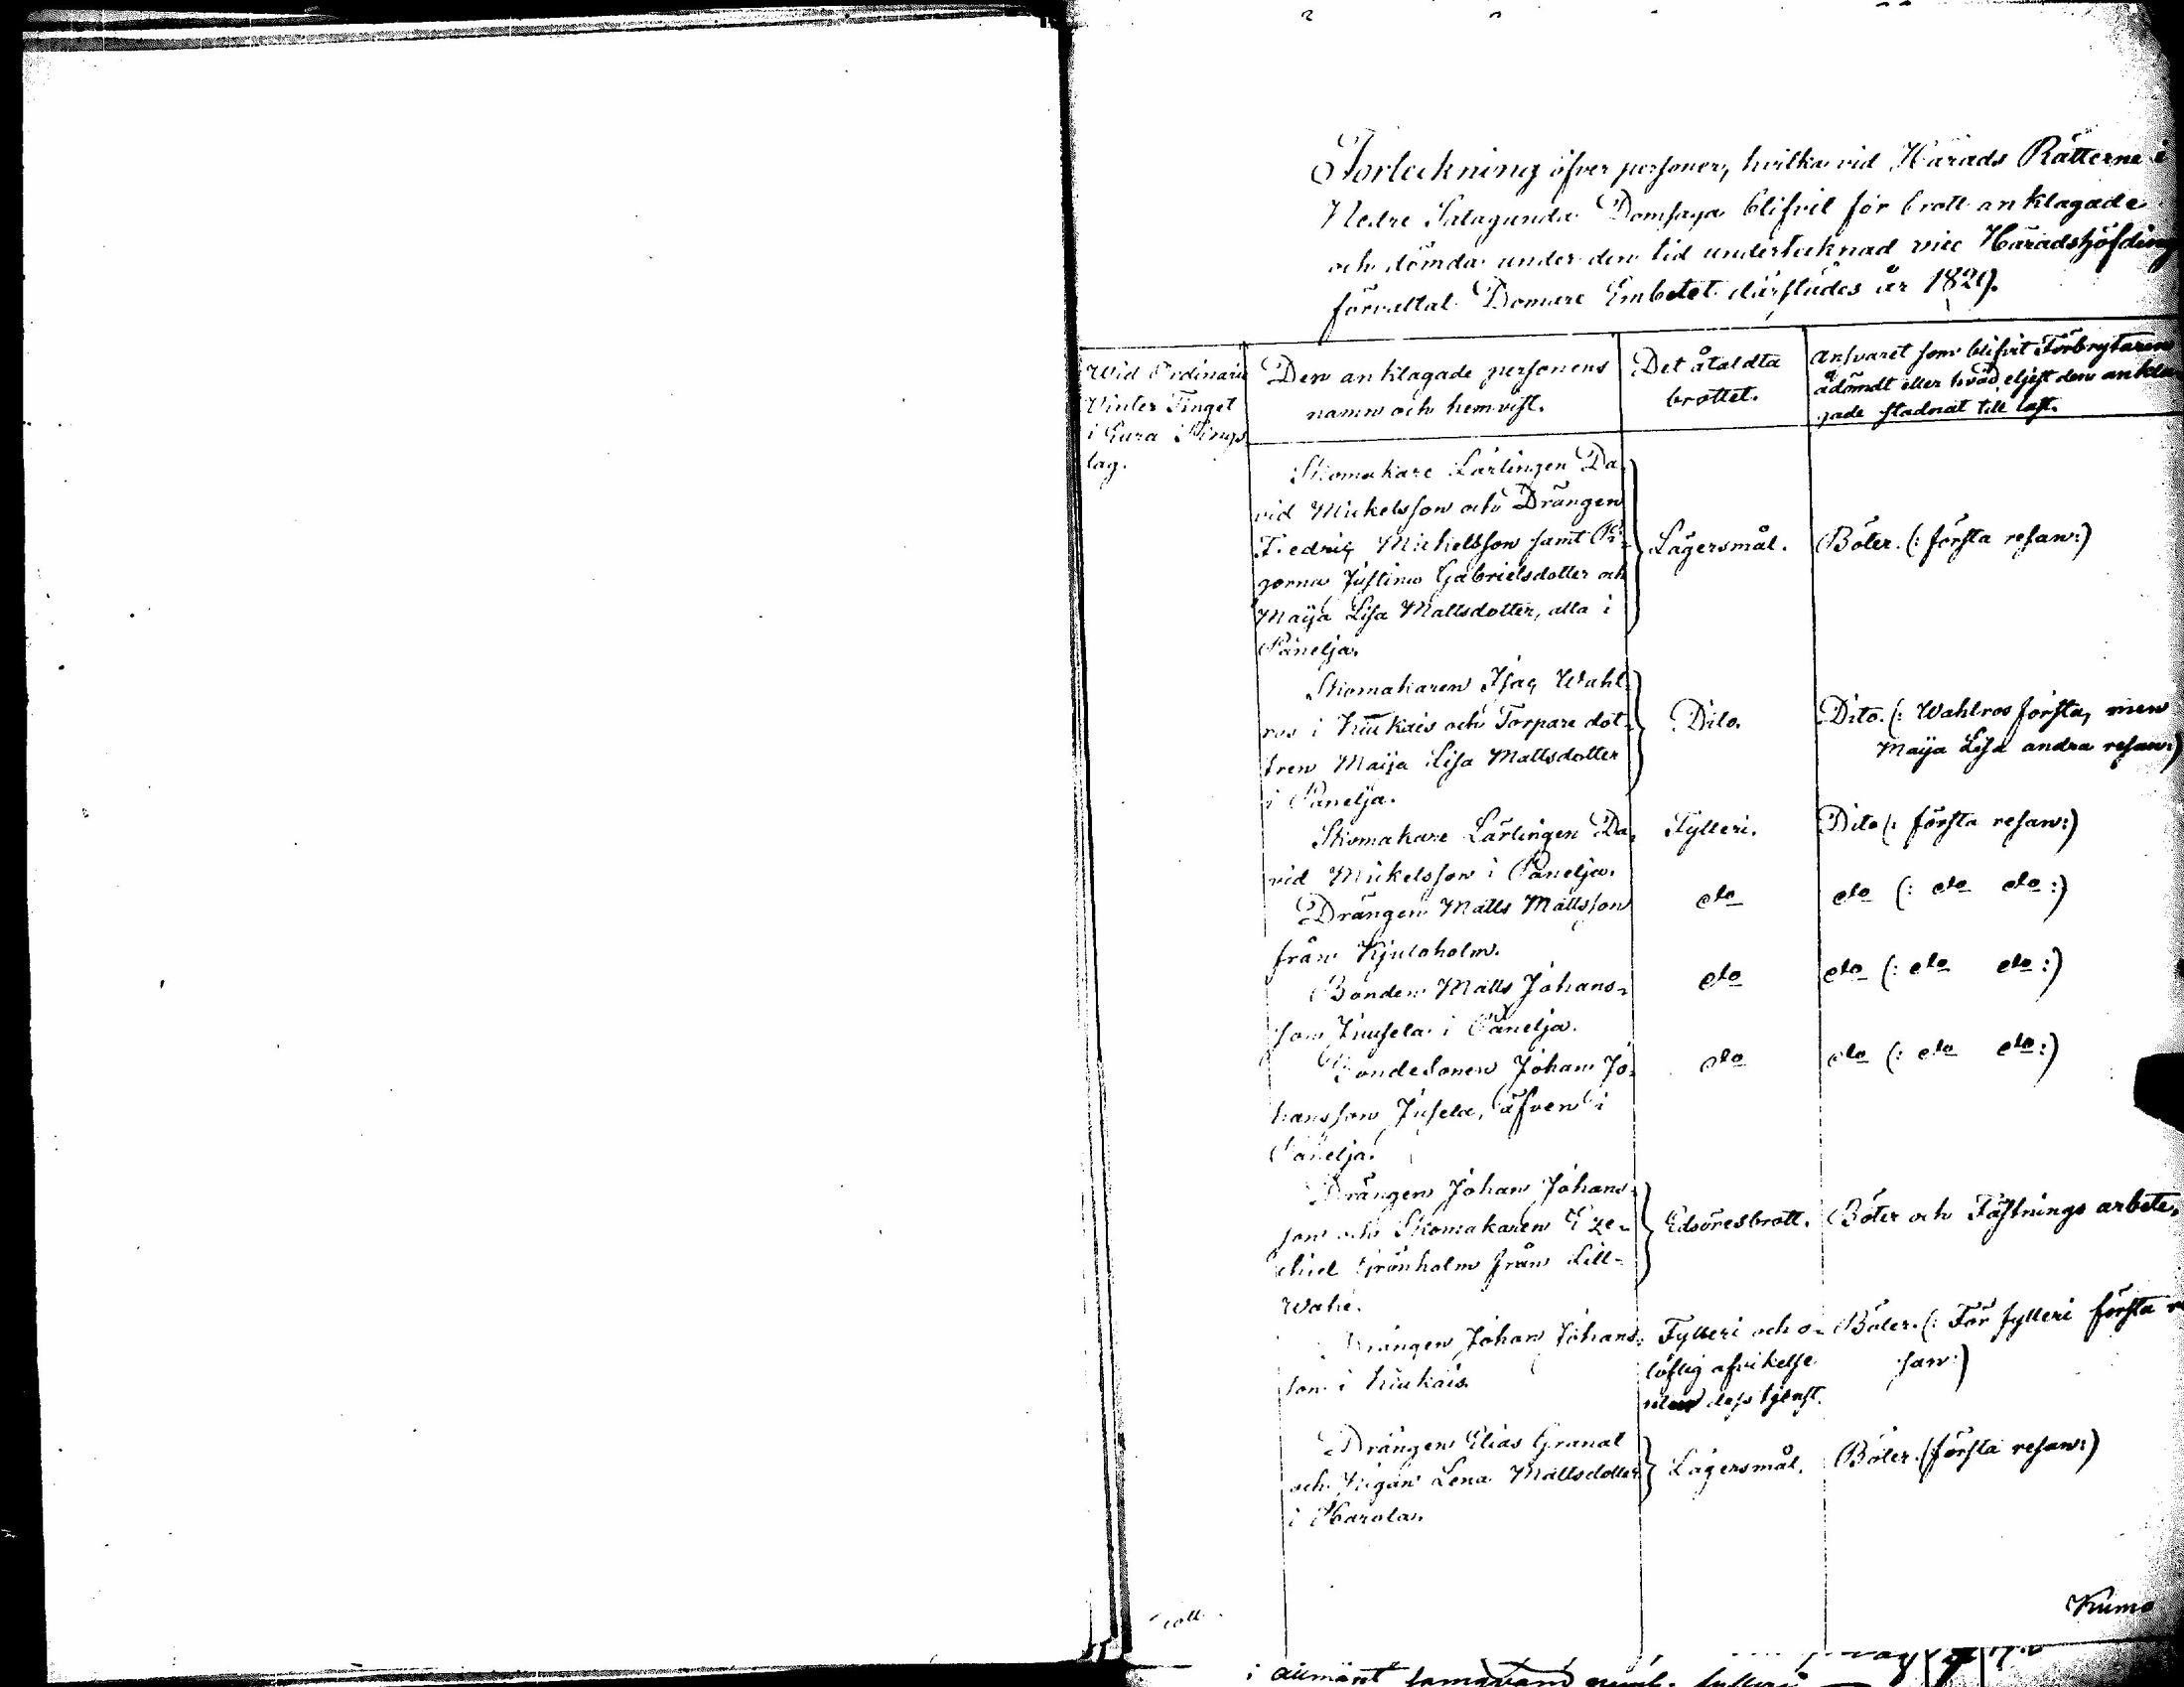 Förteckning öfver personer, hvilka vid Härads Rätterne i
Nedre Satagunda Domsaga blifvit för brott anklagade
och dömda under den tid undertecknad vice Häradshöfding
förvaltat Domare Embetet därstädes år 1829.
Wid Ordinarie
Vinter Tinget
i Eura Tings
lag.
Den anklagade personens
namn och hemvist.
Det åtaldta
brottet.
Ansvaret som blifvit Förbrytaren
ådömdt eller hvad eljest den ankla
gade stadnat till last.
Skomakare Lärlingen Da
vid Mickelsson och Drängen
Fredriq Michelsson samt Pi-
gorna Justina Gabrielsdotter och
Maija Lisa Mattsdotter, alla i
Panelja.
Lägersmål.
Böter. (: första resan:)
Skomakaren Isaq Wahl
ros i Kiukais och Torpare dot-
tren Maija Lisa Mattsdotter
i Panelja.
Dito.
Dito. (: Wahlros första, men
Maija Lisa andra resan:)
Skomakare Lärlingen Da
vid Mickelsson i Panelja.
Fylleri.
Dito (: första resan:)
Drängen Matts Mattsson
från Kjuloholm.
do
do (: do do :)
Bonden Matts Johans-
son Juusela i Panelja.
do
do (: do do :)
Bondesonen Johan Jo-
hansson Jusela, äfven i
Panelja.
do
do (: do do :)
Drängen Johan Johans-
son och Skomakaren Eze-
chiel Grönholm från Lill-
Wahe.
Edsöresbrott.
Böter och Fästnings arbete.
Drängen Johan Johans-
son i Kiukais.
Fylleri och o-
loflig afvikelse
utur dess tjenst.
Böter. (: För fylleri första re
san:)
Drängen Elias Granat
och Pigan Lena Mattsdotter
i Harola.
Lägersmål.
Böter. (första resan:)
Kumo
i allmänt